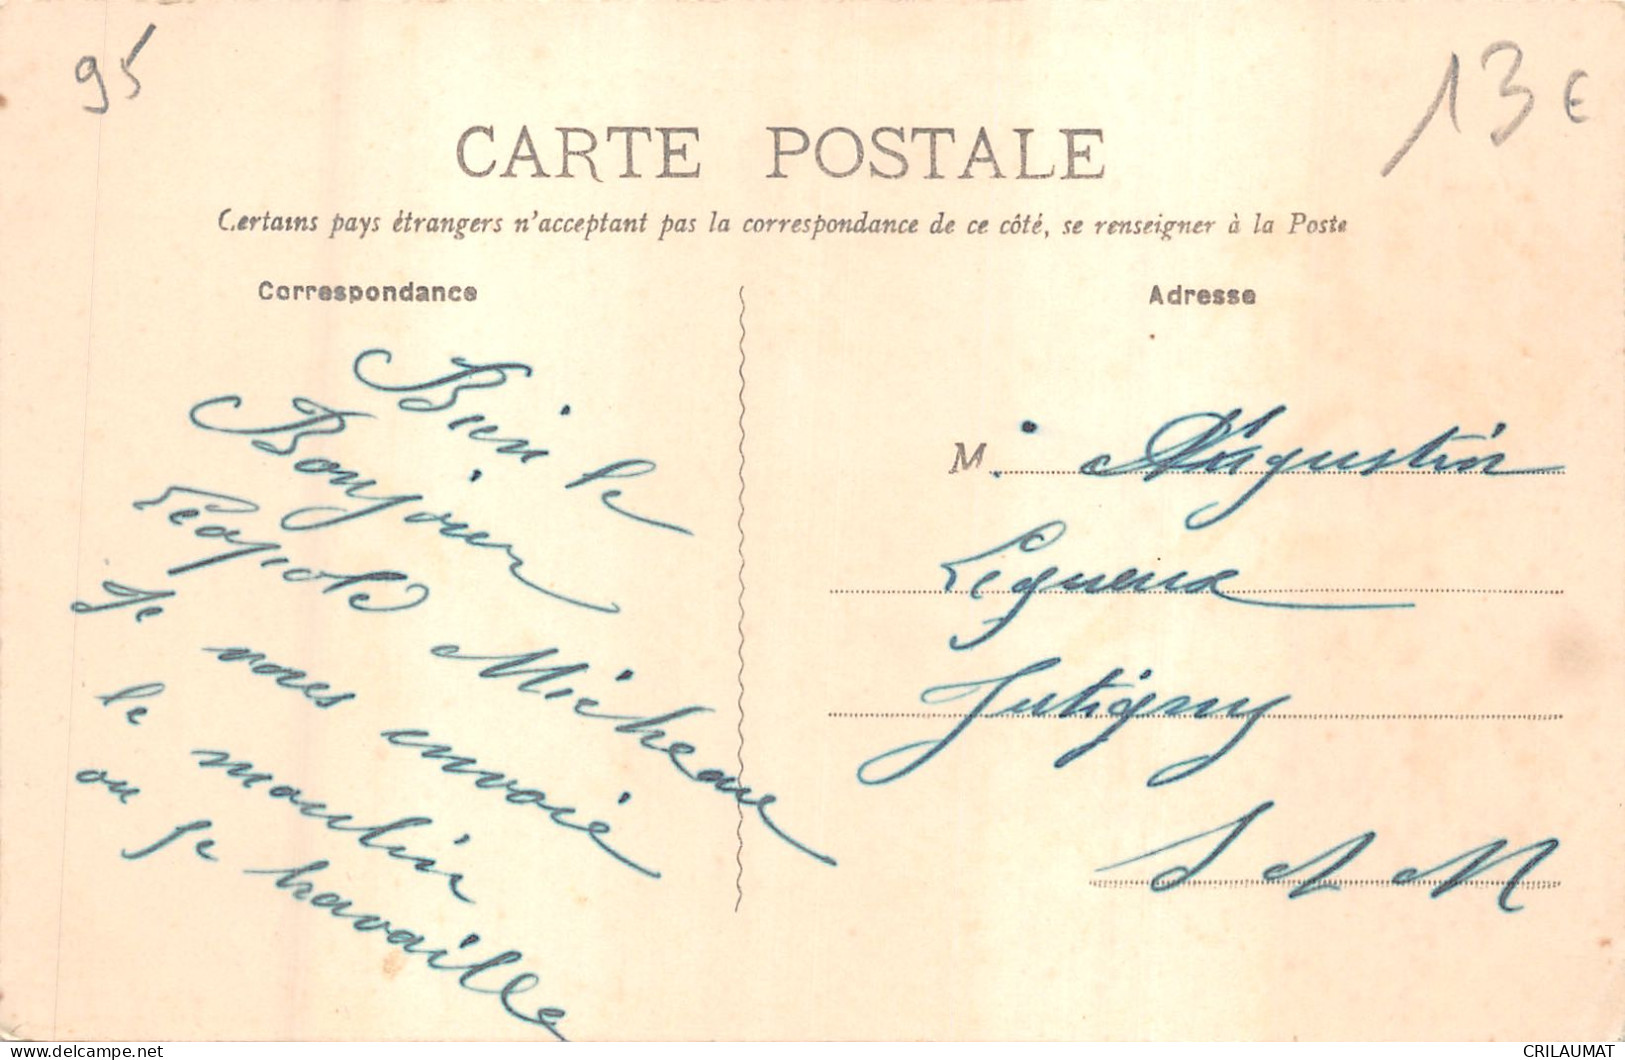 95
13 €
CARTE POSTALE
Certains pays étrangers n'acceptant pas la correspondance de ce côté, se renseigner à la Poste
Correspondance
Bien le
Bonjour
Léopold Micheau
Je vous envoie
le moulin
ou je travaille
Adresse
M. Augustin
Legueux
Jutigny
S A M
CRILAUMAT